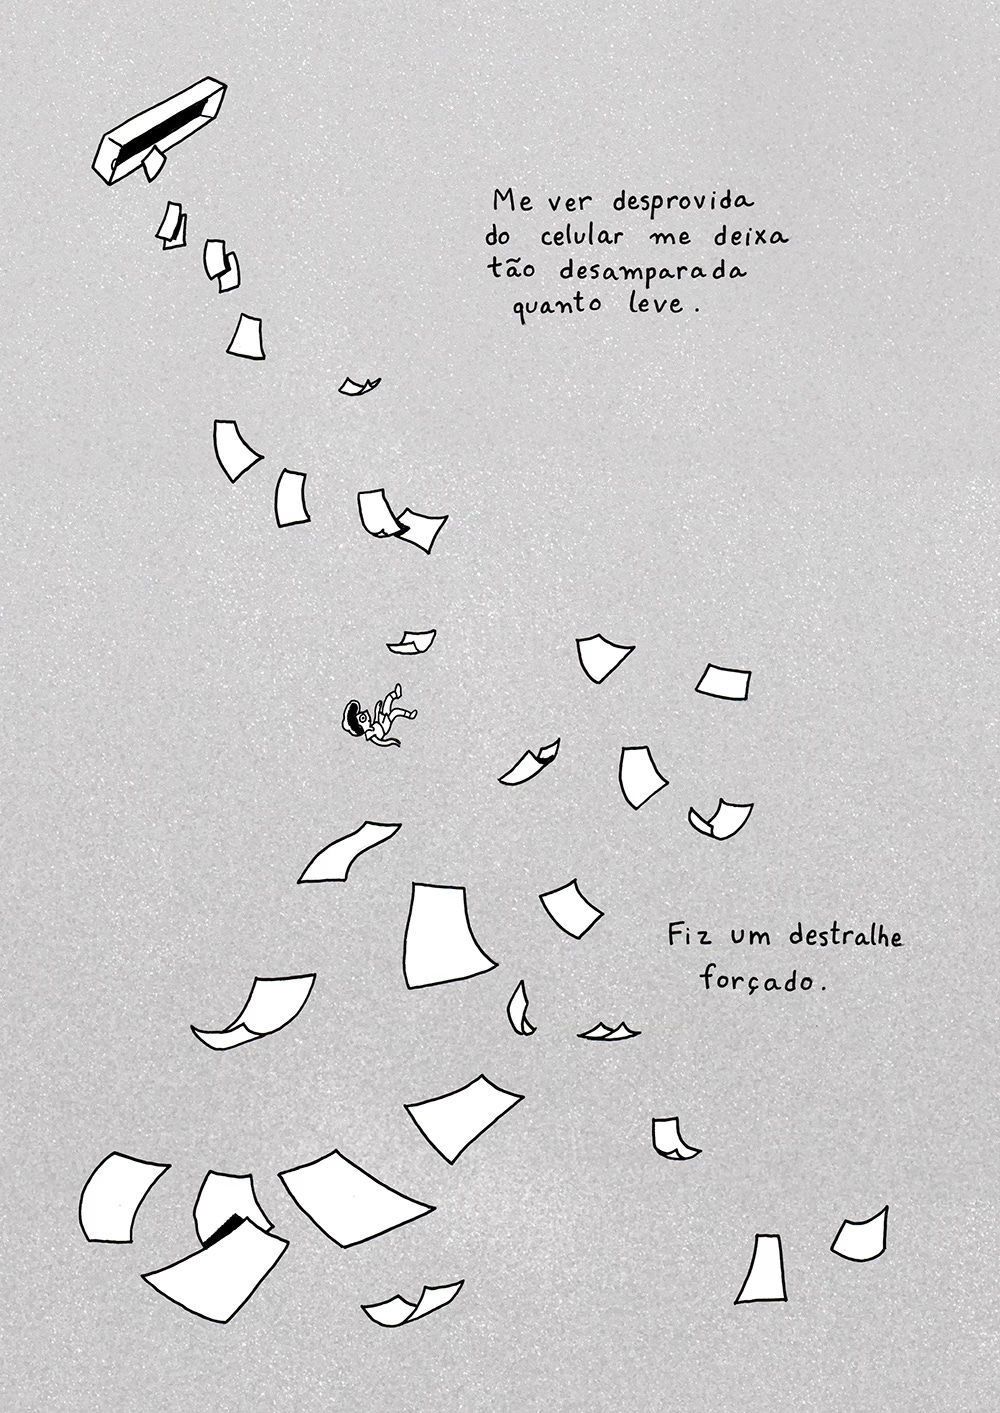 Me ver desprovida
do celular me deixa
tão desamparada
quanto leve.
Fiz um destralhe
forçado.